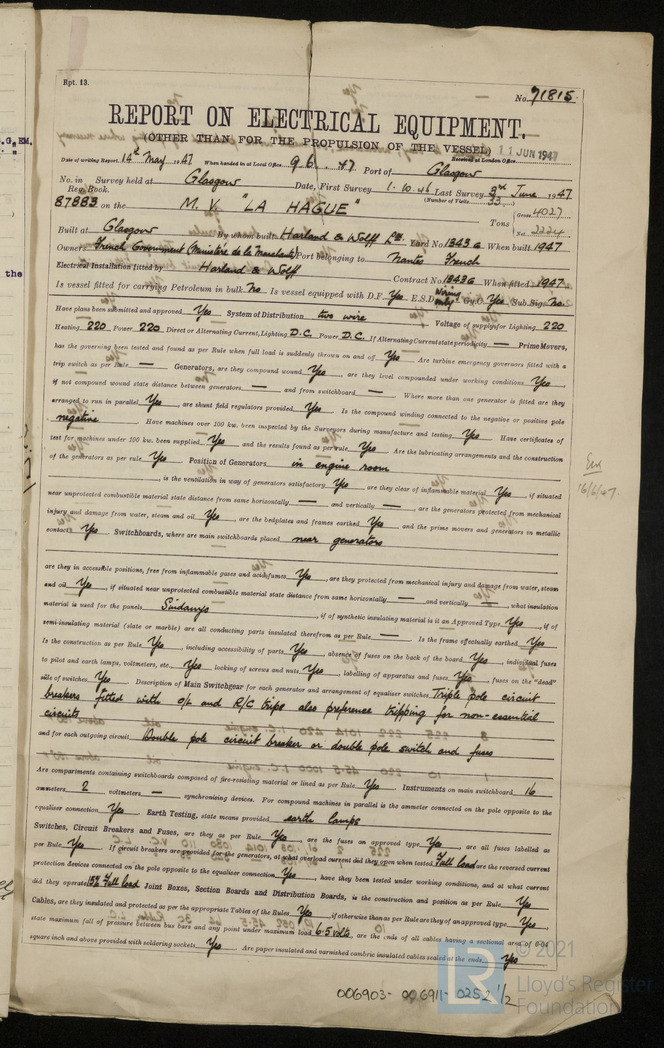 Rpt. 13.
No. 71815.
REPORT ON ELECTRICAL EQUIPMENT.
(OTHER THAN FOR THE PROPULSION OF THE VESSEL)
11 JUN 1947
Date of writing Report 14th May 1947 When handed in at Local Office 9.6.47 Port of Glasgow Received at London Office
No. in Reg. Book. Survey held at Glasgow Date, First Survey 1.10.46 Last Survey 3rd June 1947
(Number of Visits 33)
87883 on the M.V. "LA HAGUE" Tons { Gross 4027 Net 2224
Built at Glasgow By whom built Harland & Wolff Ltd. Yard No. 1343G When built 1947
Owners French Government (Ministère de la Port belonging to Nantes French
Electrical Installation fitted by Harland & Wolff Contract No. 1343G When fitted 1947
Is vessel fitted for carrying Petroleum in bulk No Is vessel equipped with D.F. Yes E.S.D. Wiring only Gy.C. Yes Sub.Sig. No
Have plans been submitted and approved Yes System of Distribution two wire Voltage of supply for Lighting 220
Heating 220 Power 220 Direct or Alternating Current, Lighting D.C. Power D.C. If Alternating Current state periodicity — Prime Movers,
has the governing been tested and found as per Rule when full load is suddenly thrown on and off Yes Are turbine emergency governors fitted with a
trip switch as per Rule — Generators, are they compound wound Yes, are they level compounded under working conditions Yes,
if not compound wound state distance between generators — and from switchboard — Where more than one generator is fitted are they
arranged to run in parallel Yes, are shunt field regulators provided Yes Is the compound winding connected to the negative or positive pole
negative Have machines over 100 kw. been inspected by the Surveyors during manufacture and testing Yes Have certificates of
test for machines under 100 kw. been supplied Yes and the results found as per rule Yes Are the lubricating arrangements and the construction
of the generators as per rule Yes Position of Generators in engine room
, is the ventilation in way of generators satisfactory Yes, are they clear of inflammable material Yes, if situated
near unprotected combustible material state distance from same horizontally — and vertically —, are the generators protected from mechanical
injury and damage from water, steam and oil Yes, are the bedplates and frames earthed Yes and the prime movers and generators in metallic
contact Yes Switchboards, where are main switchboards placed near generators
are they in accessible positions, free from inflammable gases and acid fumes Yes, are they protected from mechanical injury and damage from water, steam
and oil Yes, if situated near unprotected combustible material state distance from same horizontally — and vertically —, what insulation
material is used for the panels Sindanyo, if of synthetic insulating material is it an Approved Type Yes, if of
semi-insulating material (slate or marble) are all conducting parts insulated therefrom as per Rule — Is the frame effectually earthed Yes
Is the construction as per Rule Yes, including accessibility of parts Yes, absence of fuses on the back of the board Yes, individual fuses
to pilot and earth lamps, voltmeters, etc. Yes, locking of screws and nuts Yes, labelling of apparatus and fuses Yes, fuses on the "dead"
side of switches Yes Description of Main Switchgear for each generator and arrangement of equaliser switches Triple pole circuit
breakers fitted with O/L and R/C trips also preference tripping for non-essential
circuits
and for each outgoing circuit Double pole circuit breaker or double pole switch and fuses
Are compartments containing switchboards composed of fire-resisting material or lined as per Rule Yes Instruments on main switchboard 16
ammeters 2 voltmeters — synchronising devices. For compound machines in parallel is the ammeter connected on the pole opposite to the
equaliser connection Yes Earth Testing, state means provided earth lamps
Switches, Circuit Breakers and Fuses, are they as per Rule Yes, are the fuses an approved type Yes, are all fuses labelled as
per Rule Yes If circuit breakers are provided for the generators, at what overload current did they open when tested Full load are the reversed current
protection devices connected on the pole opposite to the equaliser connection Yes, have they been tested under working conditions, and at what current
did they operate 15% Full load Joint Boxes, Section Boards and Distribution Boards, is the construction and position as per Rule Yes
Cables, are they insulated and protected as per the appropriate Tables of the Rules Yes, if otherwise than as per Rule are they of an approved type Yes,
state maximum fall of pressure between bus bars and any point under maximum load 6.5 volts, are the ends of all cables having a sectional area of 0.04
square inch and above provided with soldering sockets Yes Are paper insulated and varnished cambric insulated cables sealed at the ends Yes
16/6/47.
006903-006911-0252 1/2
© 2021
Lloyd's Register
Foundation
LR
the